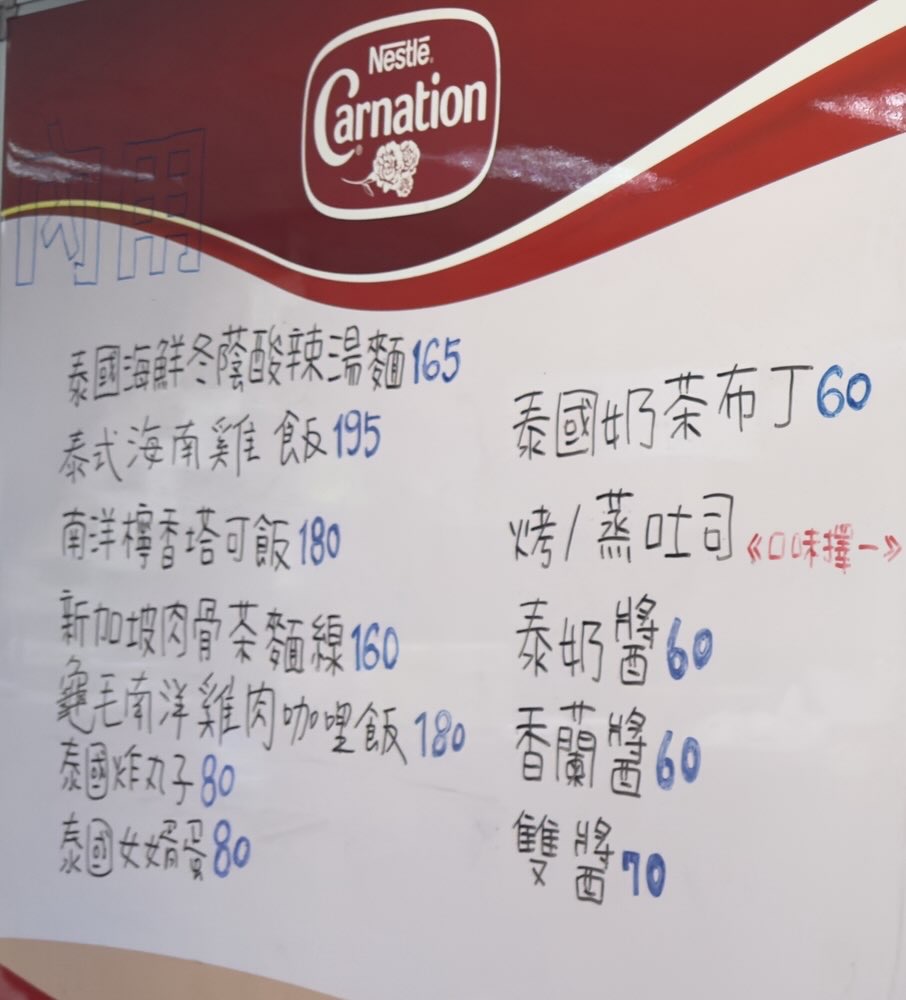 Nestlé
Carnation
內用
泰國海鮮冬蔭酸辣湯麵165
泰式海南雞飯195
南洋檸香塔可飯180
新加坡肉骨茶麵線160
龜毛南洋雞肉咖哩飯180
泰國炸丸子80
泰國女婿蛋80
泰國奶茶布丁60
烤/蒸吐司《口味擇一》
泰奶醬60
香蘭醬60
雙醬70